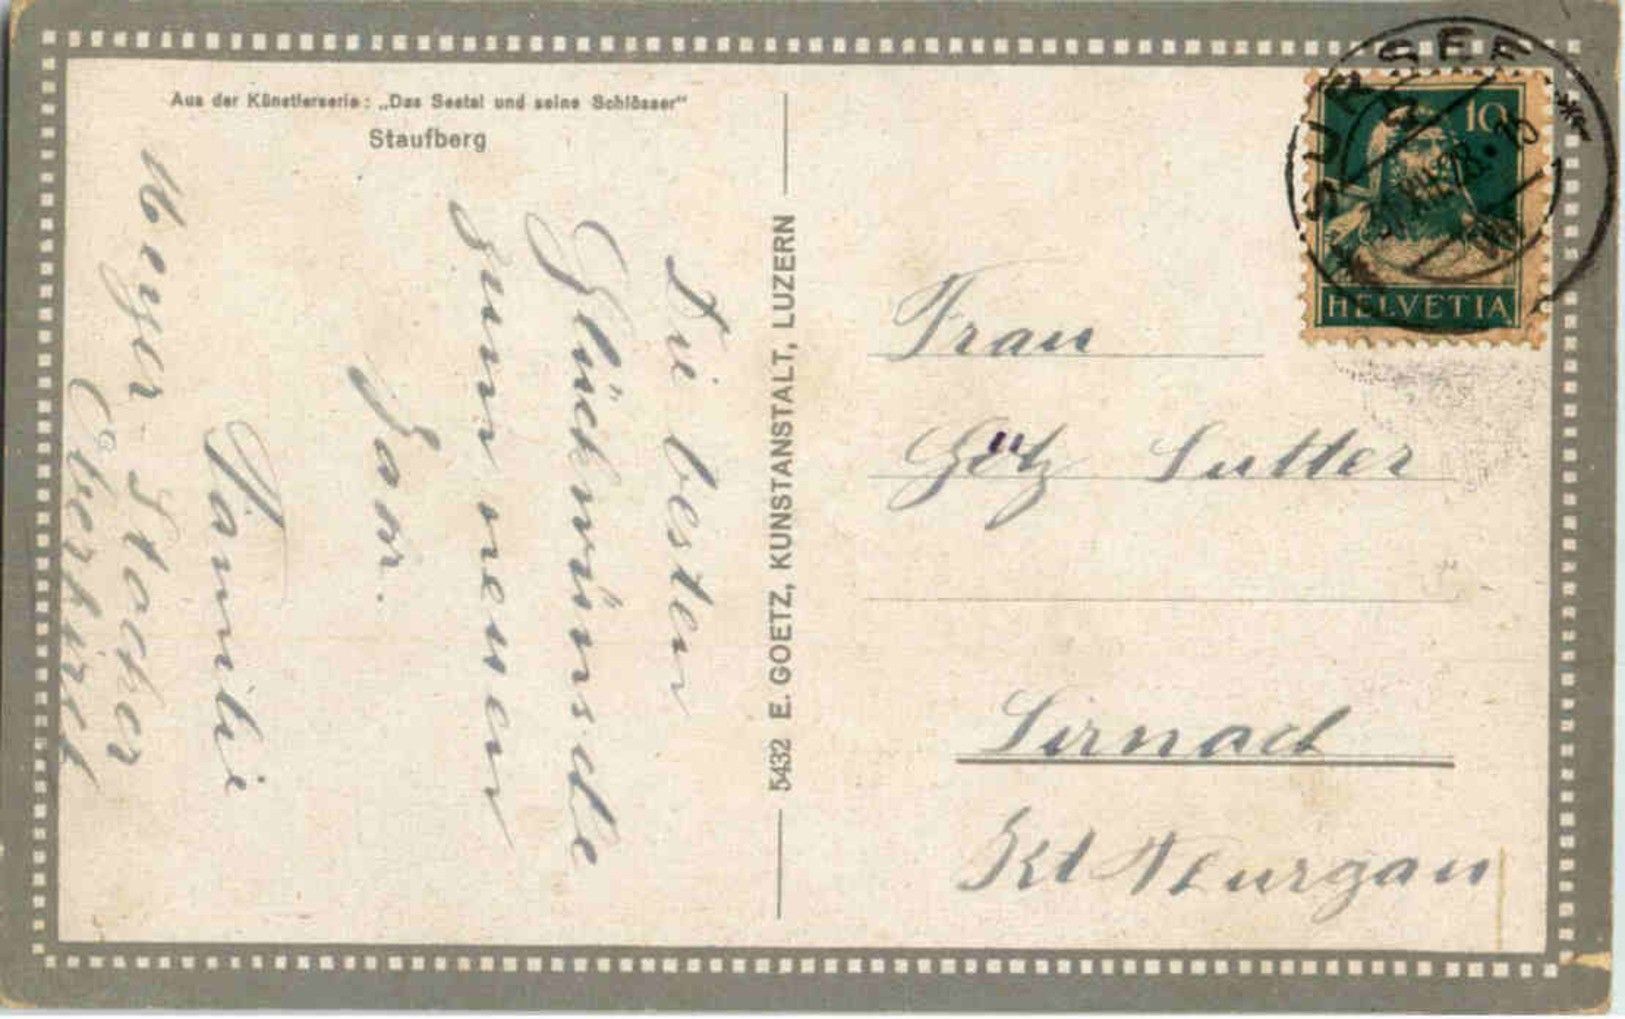 Aus der Künstlerserie: „Das Seetal und seine Schlösser"
Staufberg
Die besten
Glückwünsche
zum neuen
Jaar.
Familie
Meyer Stocker
5432 E. GOETZ, KUNSTANSTALT, LUZERN
SURSEE
10
31.XII.28.10
HELVETIA
Frau
Götz Sutter
Sirnach
Kt Thurgau